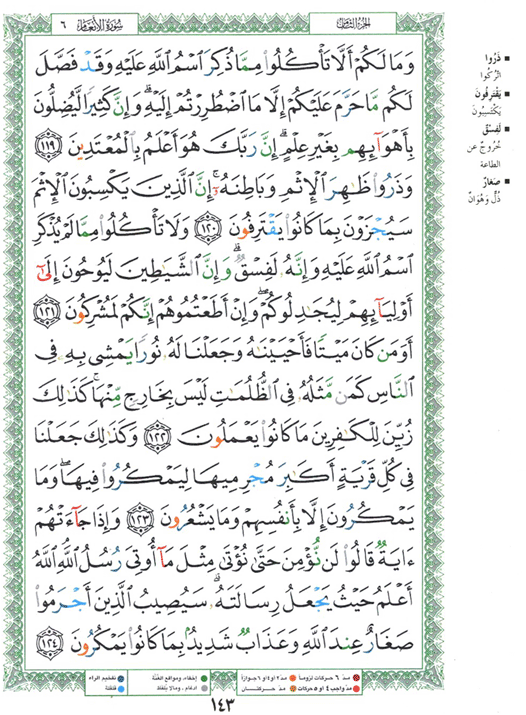 سُورَةُ الأَنعَامِ ٦
الجزء الثامن
وَمَا لَكُمْ أَلَّا تَأْكُلُوا۟ مِمَّا ذُكِرَ ٱسْمُ ٱللَّهِ عَلَيْهِ وَقَدْ فَصَّلَ
لَكُم مَّا حَرَّمَ عَلَيْكُمْ إِلَّا مَا ٱضْطُرِرْتُمْ إِلَيْهِ ۗ وَإِنَّ كَثِيرًا لَّيُضِلُّونَ
بِأَهْوَآئِهِم بِغَيْرِ عِلْمٍ ۗ إِنَّ رَبَّكَ هُوَ أَعْلَمُ بِٱلْمُعْتَدِينَ ١١٩
وَذَرُوا۟ ظَٰهِرَ ٱلْإِثْمِ وَبَاطِنَهُۥٓ ۚ إِنَّ ٱلَّذِينَ يَكْسِبُونَ ٱلْإِثْمَ
سَيُجْزَوْنَ بِمَا كَانُوا۟ يَقْتَرِفُونَ ١٢٠ وَلَا تَأْكُلُوا۟ مِمَّا لَمْ يُذْكَرِ
ٱسْمُ ٱللَّهِ عَلَيْهِ وَإِنَّهُۥ لَفِسْقٌ ۗ وَإِنَّ ٱلشَّيَٰطِينَ لَيُوحُونَ إِلَىٰٓ
أَوْلِيَآئِهِمْ لِيُجَٰدِلُوكُمْ ۖ وَإِنْ أَطَعْتُمُوهُمْ إِنَّكُمْ لَمُشْرِكُونَ ١٢١
أَوَمَن كَانَ مَيْتًا فَأَحْيَيْنَٰهُ وَجَعَلْنَا لَهُۥ نُورًا يَمْشِى بِهِۦ فِى
ٱلنَّاسِ كَمَن مَّثَلُهُۥ فِى ٱلظُّلُمَٰتِ لَيْسَ بِخَارِجٍ مِّنْهَا ۚ كَذَٰلِكَ
زُيِّنَ لِلْكَٰفِرِينَ مَا كَانُوا۟ يَعْمَلُونَ ١٢٢ وَكَذَٰلِكَ جَعَلْنَا
فِى كُلِّ قَرْيَةٍ أَكَٰبِرَ مُجْرِمِيهَا لِيَمْكُرُوا۟ فِيهَا ۖ وَمَا
يَمْكُرُونَ إِلَّا بِأَنفُسِهِمْ وَمَا يَشْعُرُونَ ١٢٣ وَإِذَا جَآءَتْهُمْ
ءَايَةٌ قَالُوا۟ لَن نُّؤْمِنَ حَتَّىٰ نُؤْتَىٰ مِثْلَ مَآ أُوتِىَ رُسُلُ ٱللَّهِ ۘ ٱللَّهُ
أَعْلَمُ حَيْثُ يَجْعَلُ رِسَالَتَهُۥ ۗ سَيُصِيبُ ٱلَّذِينَ أَجْرَمُوا۟
صَغَارٌ عِندَ ٱللَّهِ وَعَذَابٌ شَدِيدٌۢ بِمَا كَانُوا۟ يَمْكُرُونَ ١٢٤
■ ذَرُوا
اتْرُكُوا
■ يَقْتَرِفُونَ
يَكْتَسِبُونَ
■ لَفِسْقٌ
خُرُوجٌ عن
الطاعة
■ صَغَارٌ
ذُلٌّ وَهَوَانٌ
مدّ ٦ حركات لزوماً مدّ ٢ أو ٤ أو ٦ جوازاً
مدّ واجب ٤ أو ٥ حركات مدّ حركتان
إخفاء، ومواقع الغُنَّة
إدغام، وما لا يُلفَظ
تفخيم الراء
قلقلة
١٤٣